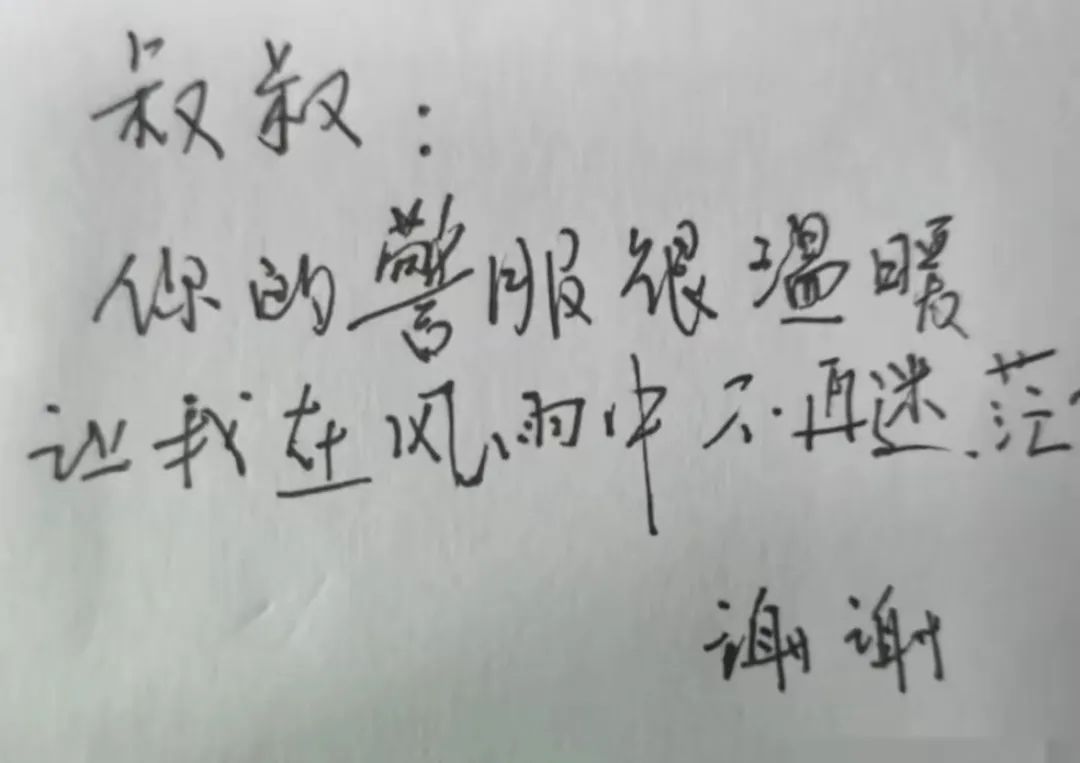 叔叔:
你的警服很温暖
让我在风雨中不再迷茫
谢谢